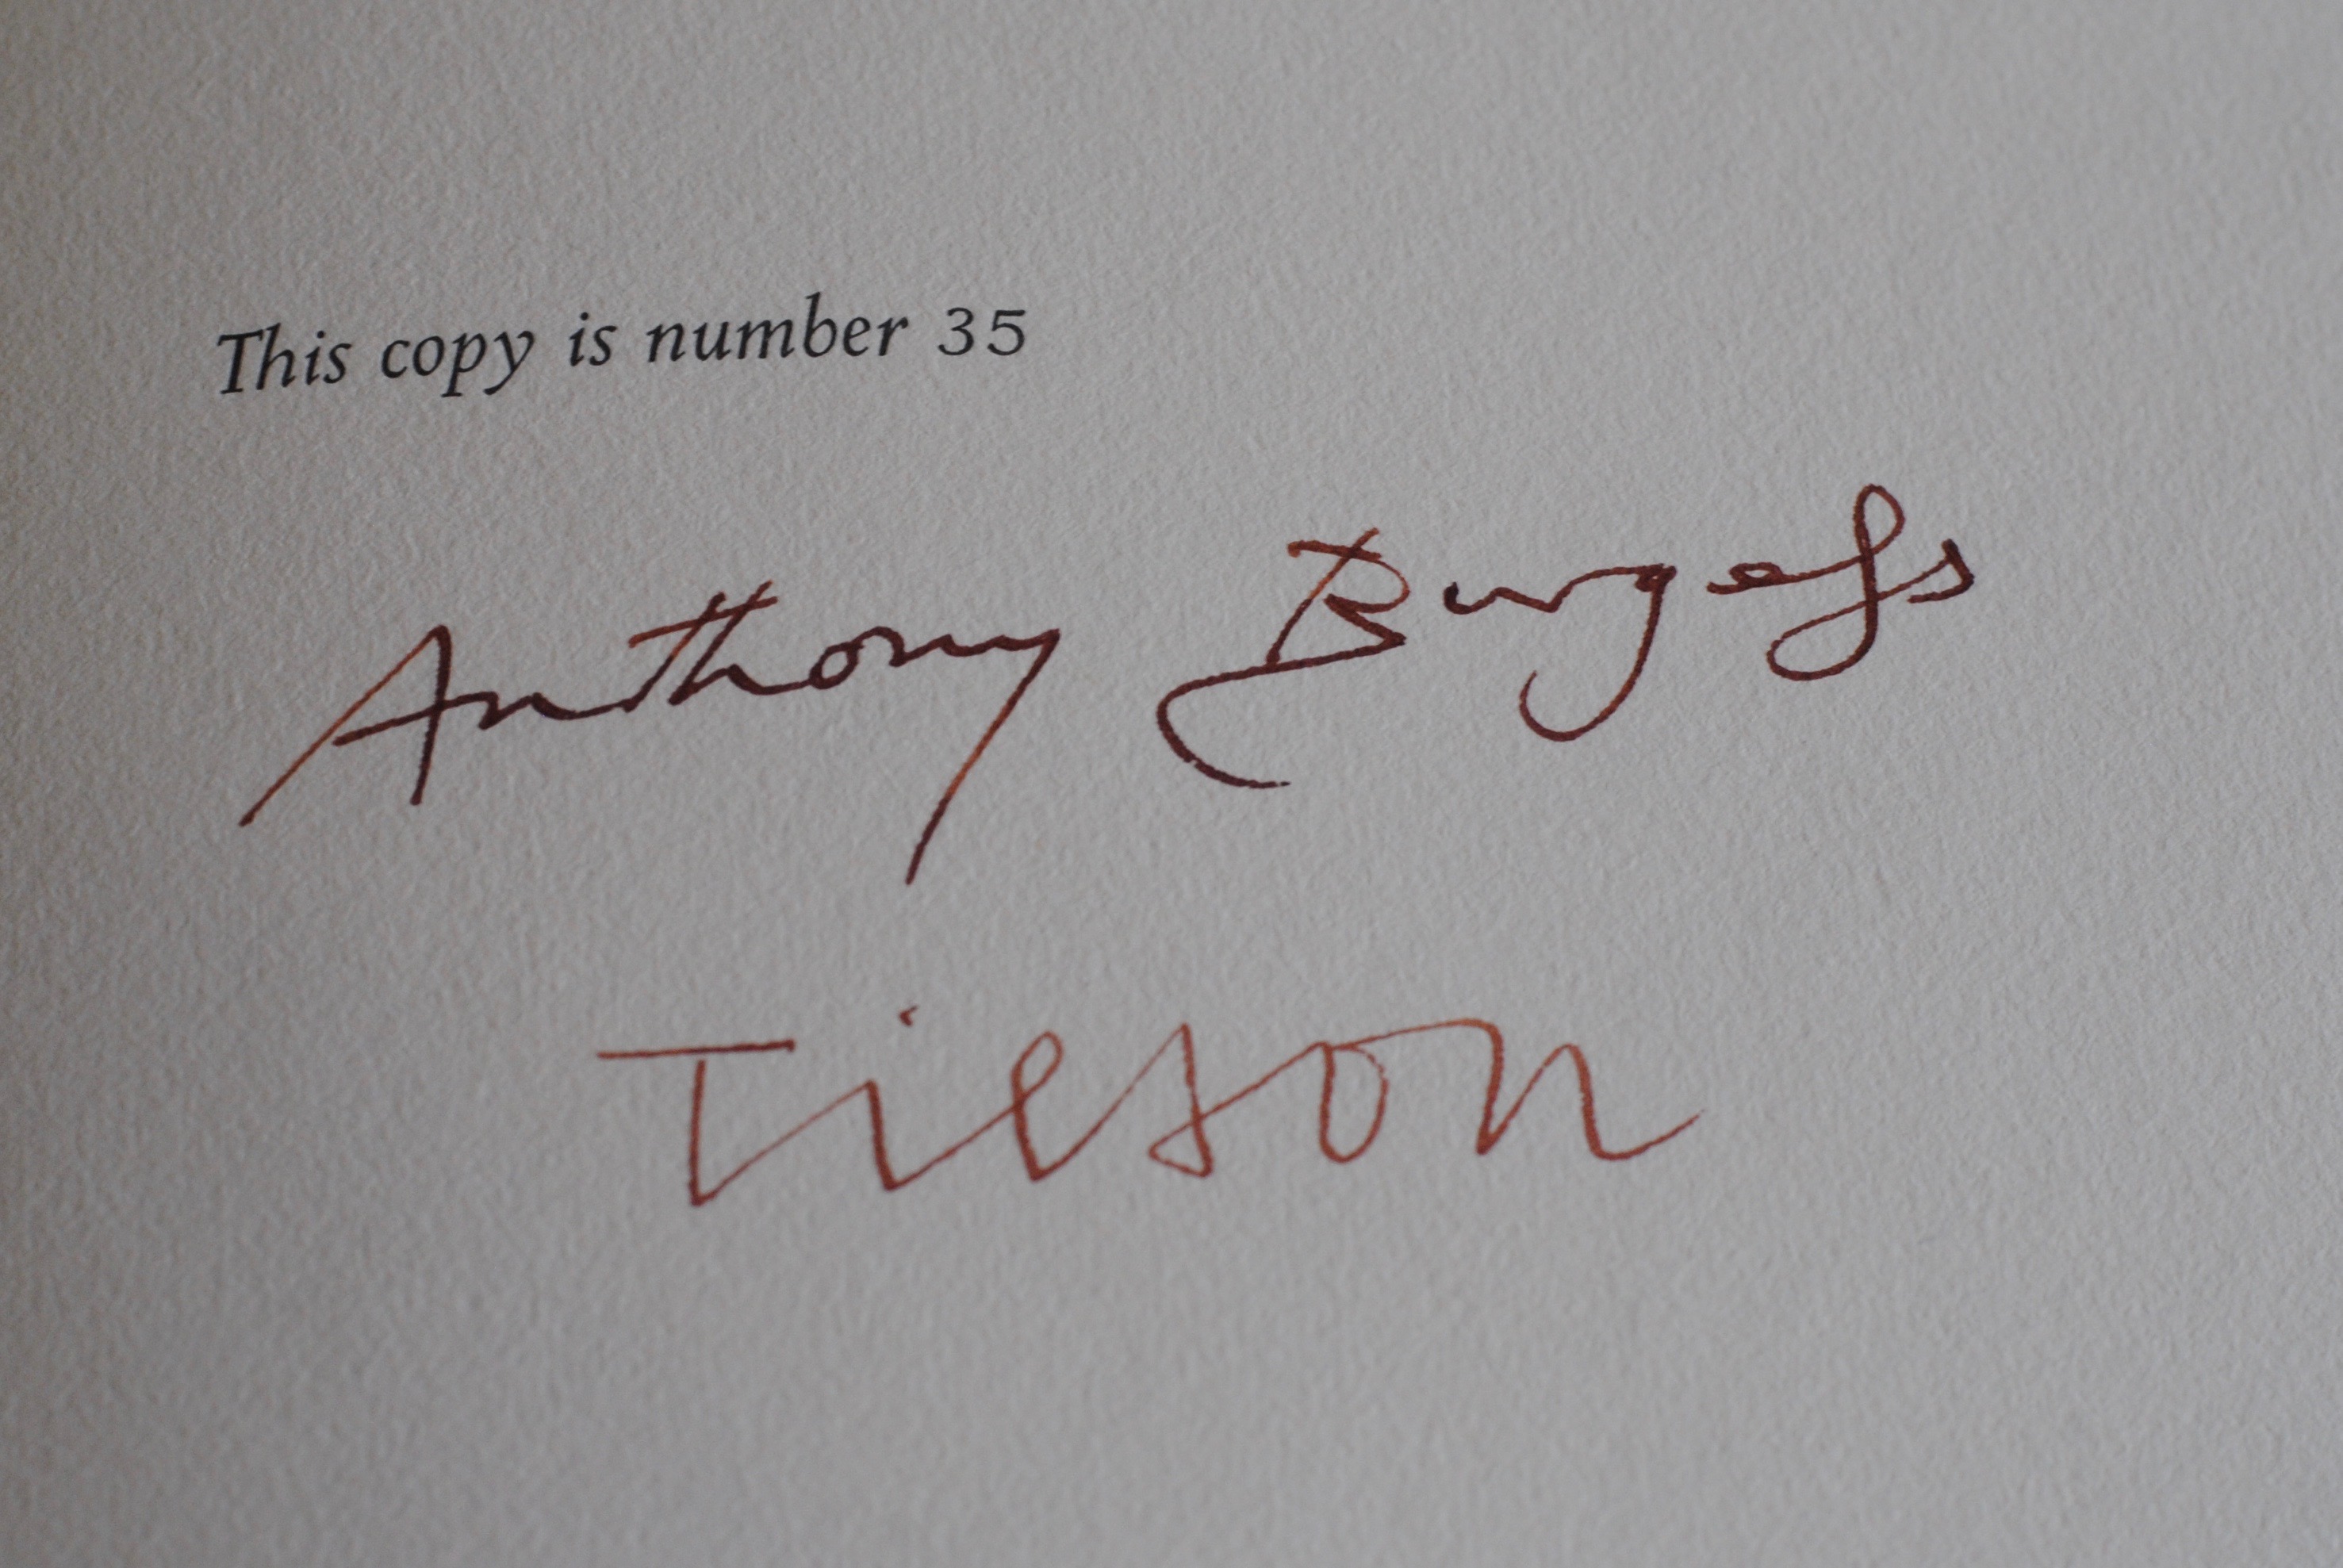 This copy is number 35
Anthony Burgess
Tilson